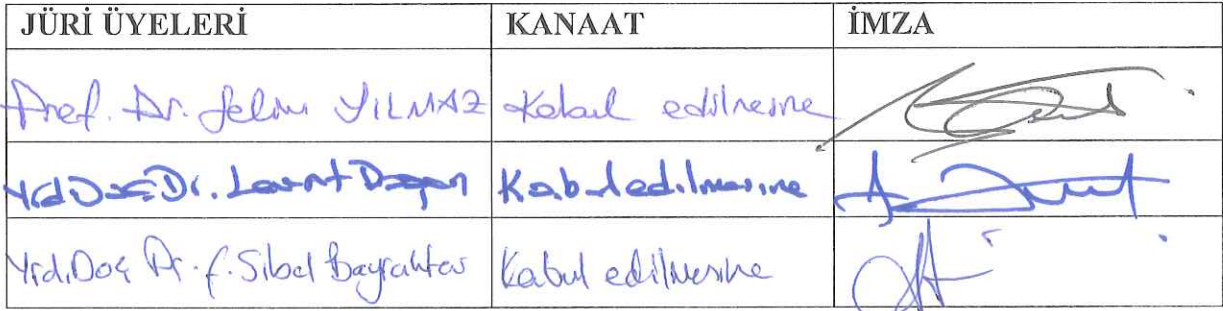 JÜRİ ÜYELERİ KANAAT İMZA
Prof. Dr. Selim YILMAZ Kabul edilmesine
Yrd Doç. Dr. Levent Doğan Kabul edilmesine
Yrd. Doç Dr. F. Sibel Bayraktar Kabul edilmesine